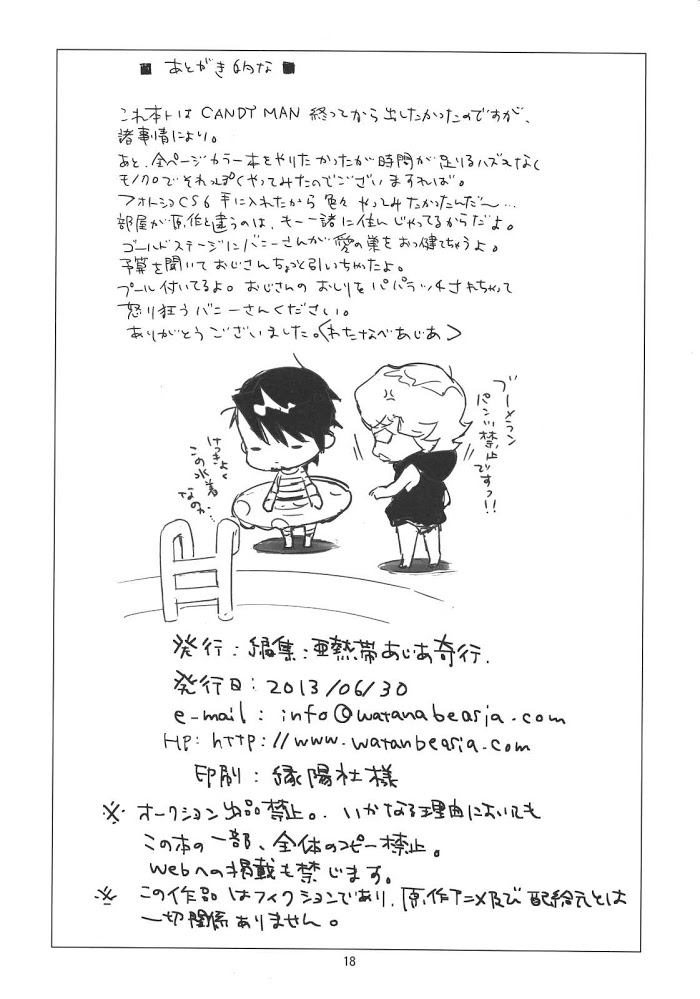 ■ あとがき的な ■
これ本トは CANDY MAN 終ってから出したかったのですが、
諸事情により。
あと、全ページカラー本をやりたかったが時間が足りるハズもなく
モノクロでそれっぽくやってみたのでございますれば。
フォトショCS6 手に入れたから色々やってみたかったんだ〜…
部屋が原作と違うのは、もー諸に住んじゃってるからだよ。
ゴールドステージにバニーさんが愛の巣をおっ健てちゃうよ。
予算を聞いておじさんちょっと引いちゃったよ。
プール付いてるよ。おじさんのおしりをパパラッチされちゃって
怒り狂うバニーさんください。
ありがとうございました。<わたなべあじあ>
ブーメラン
パンツ禁止ですっ!!
けっきょく
この水着
なのか…
発行:編集:亜熱帯あじあ奇行.
発行日:2013/06/30
e-mail : info@watanabeasia.com
HP: http://www.watanbeasia.com
印刷:縁陽社様
※ オークション出品禁止。いかなる理由においても
この本の一部、全体のコピー禁止。
webへの掲載も禁じます。
※ この作品はフィクションであり、原作アニメ及び配給元とは
一切関係ありません。
18